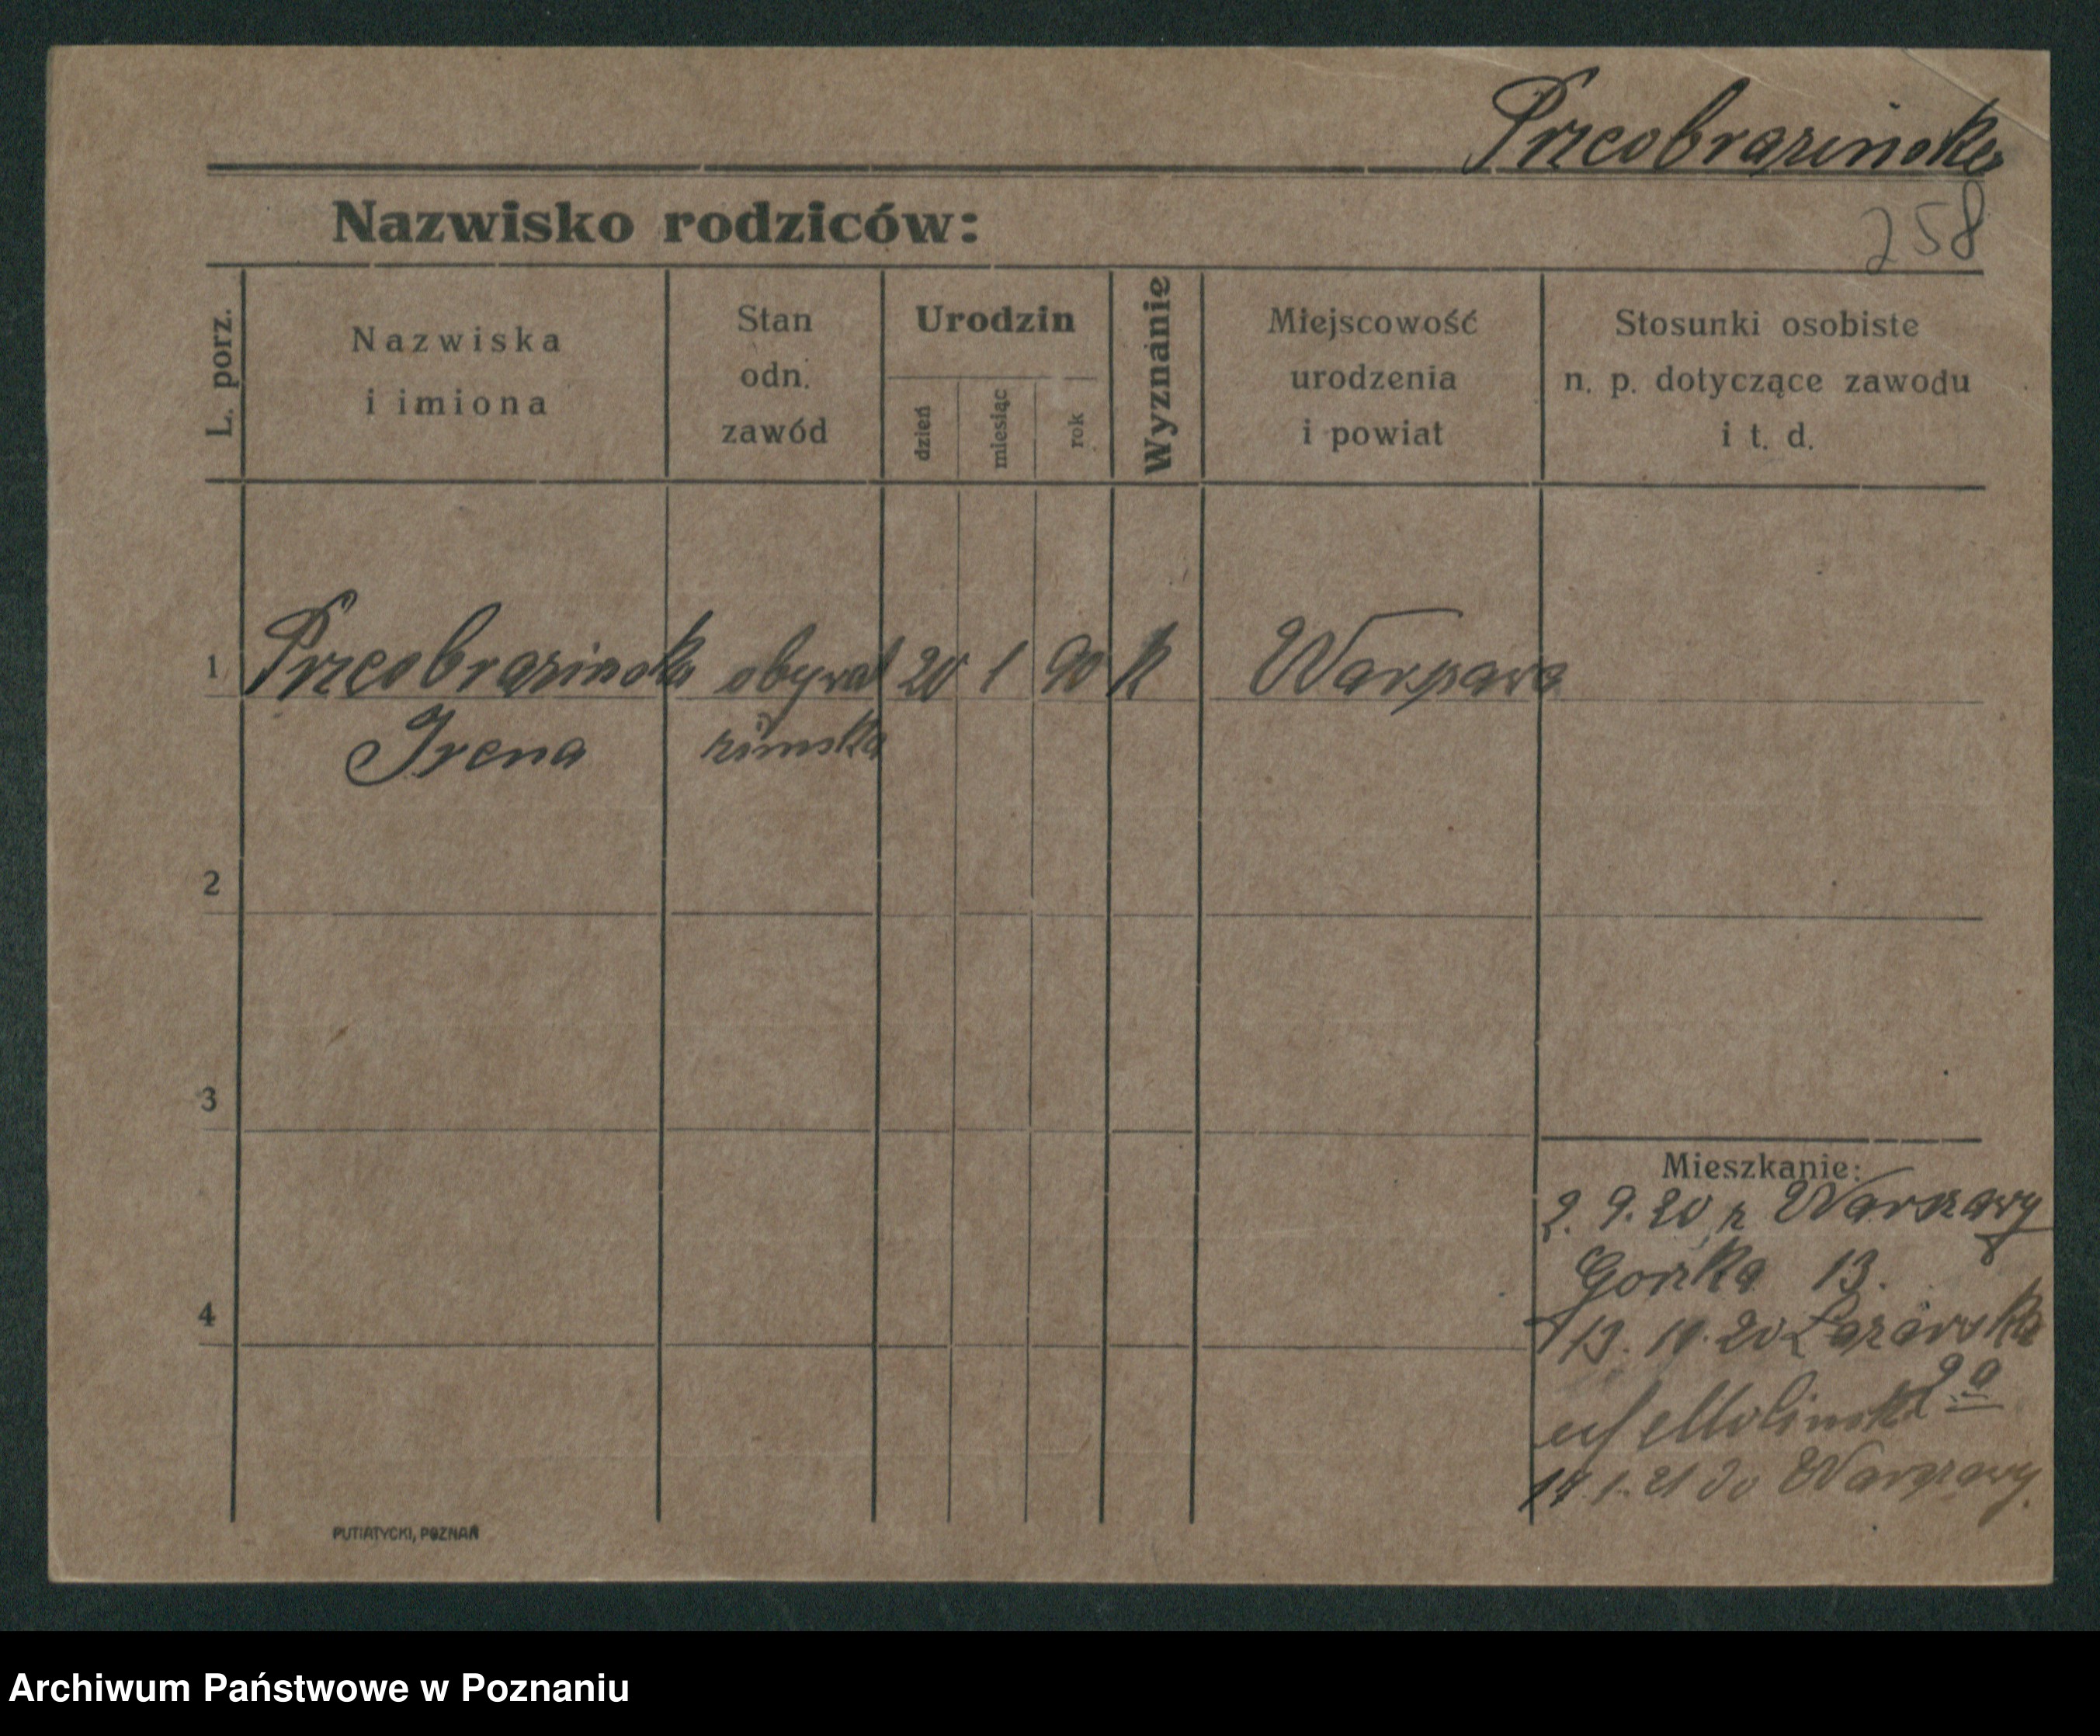 Przeobrazińska
258
Nazwisko rodziców:
L. porz.
Nazwiska
i imiona
Stan
odn.
zawód
Urodzin
dzień
miesiąc
rok
Wyznanie
Miejscowość
urodzenia
i powiat
Stosunki osobiste
n. p. dotyczące zawodu
i t. d.
1 Przeobrazinska obywat 20 1 90 k Warszawa
Irena
zimska
2
3
4
Mieszkanie:
2. 9. 20 z Warszawy
Gorzka 13.
13. 10. 20 Łazarska
9a
Molinska
1. 21 do Warszawy.
PUTIATYCKI, POZNAŃ
Archiwum Państwowe w Poznaniu